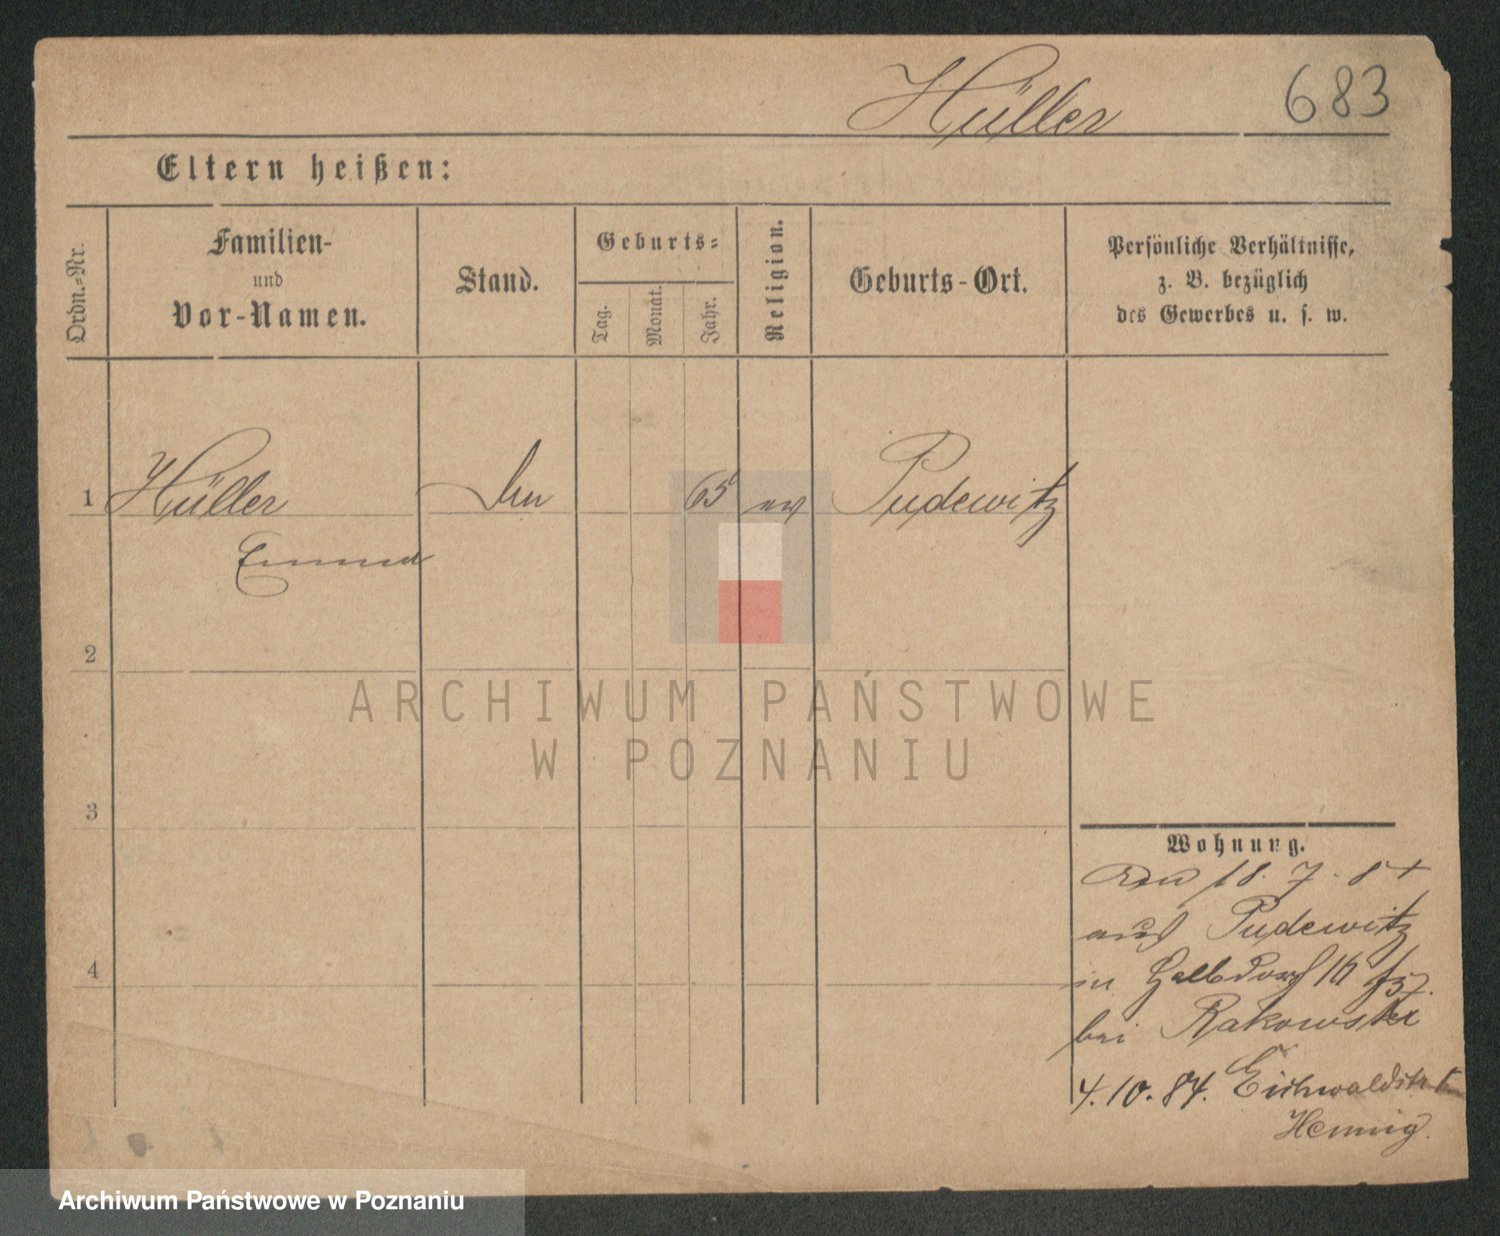 Hüller
683
Eltern heißen:
Ordn.-Nr.
Familien-
und
Vor-Namen.
Stand.
Geburts-
Tag.
Monat.
Jahr.
Religion.
Geburts-Ort.
Persönliche Verhältnisse,
z. B. bezüglich
des Gewerbes u. s. w.
1 Hüller 65 ev Pudewitz
2
ARCHIWUM PAŃSTWOWE
W POZNANIU
3
Wohnung.
18. 7. 84
aus Pudewitz
in Halbdorf 16
bei Rakowski
4
4.10.84. Eichwaldstr
Hennig.
Archiwum Państwowe w Poznaniu